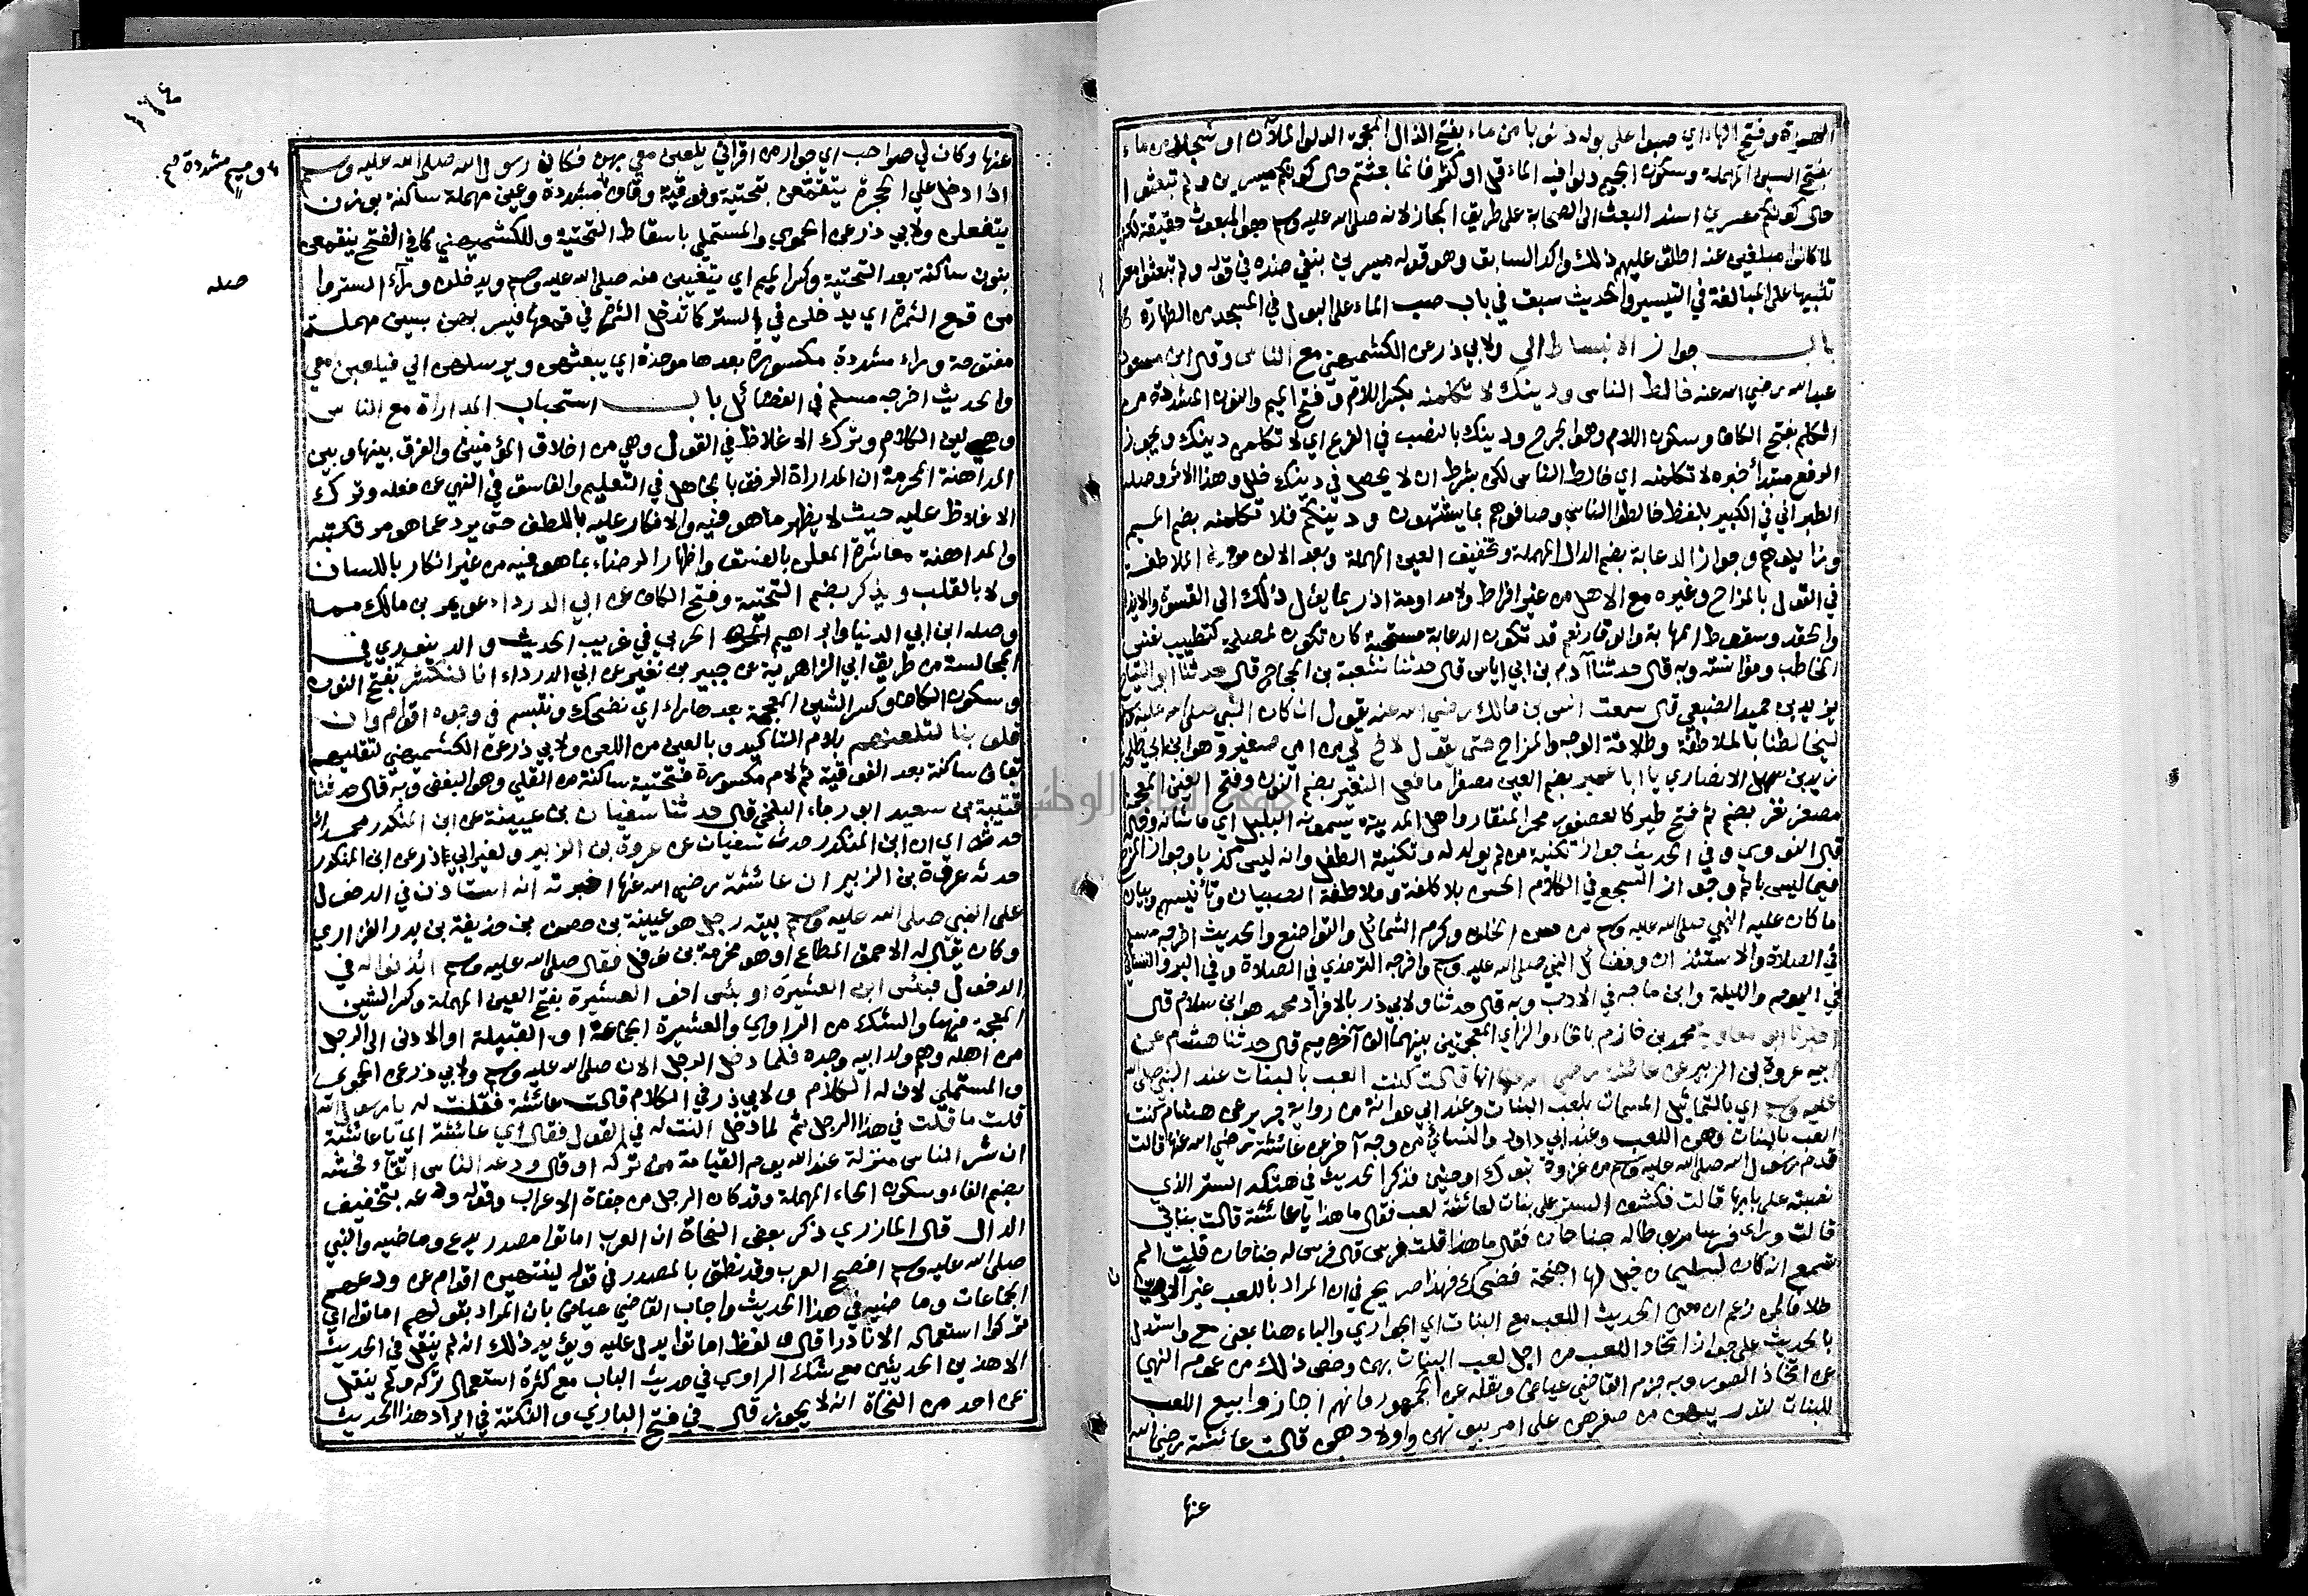 الهمزة وفتح الهاء اي صبوا على بوله ذنوبا من ماء بفتح الذال المعجمة الدلو الملآن او سجلا من ماء
بفتح السين المهملة وسكون الجيم دلوا فيه الماء قل او كثر فانما بعثتم حال كونكم ميسرين ولم تبعثوا
حال كونكم معسرين اسند البعث الى الصحابة على طريق المجاز لانه صلى الله عليه وسلم هو المبعوث حقيقة لكنهم
لما كانوا مبلغين عنه اطلق عليهم ذلك واكد السابق وهو قوله ميسرين بنفي ضده في قوله ولم تبعثوا معسرين
تنبيها على المبالغة في التيسير والحديث سبق في باب صب الماء على البول في المسجد من الطهارة
باب جواز الانبساط الى ولابي ذر عن الكشميهني مع الناس وقال ابن مسعود
عبد الله رضي الله عنه خالط الناس ودينك لا تكلمنه بكسر اللام وفتح الميم والنون المشددة من
الكلم بفتح الكاف وسكون اللام وهو الجرح ودينك بالنصب في الفرع اي لا تكلمن دينك ويجوز
الرفع مبتدأ خبره لا تكلمنه اي خالط الناس لكن بشرط ان لا يحصل في دينك خلل وهذا الاثر وصله
الطبراني في الكبير بلفظ خالطوا الناس وصافوهم بما يشتهون ودينكم فلا تكلمنه بضم الميم
وزايلوهم وجواز الدعابة بضم الدال المهملة وتخفيف العين المهملة وبعد الالف موحدة الملاطفة
في القول بالمزاح وغيره مع الاهل من غير افراط ولا مداومة اذ ربما يؤل ذلك الى القسوة والايذاء
والحقد وسقوط المهابة والوقار نعم قد تكون الدعابة مستحبة كان تكون لمصلحة كتطييب نفس
المخاطب ومؤانسته وبه قال حدثنا آدم بن ابي اياس قال حدثنا شعبة بن الحجاج قال حدثنا ابو التياح
يزيد بن حميد الضبعي قال سمعت انس بن مالك رضي الله عنه يقول ان كان النبي صلى الله عليه وسلم
ليخالطنا بالملاطفة وطلاقة الوجه والمزاح حتى يقول لاخ لي من امي صغير وهو ابن ابي طلحة
زيد بن سهل الانصاري يا ابا عمير بضم العين مصغرا ما فعل النغير بضم النون وفتح الغين المعجمة
مصغر نغر بضم ثم فتح طير كالعصفور محمر المنقار واهل المدينة يسمونه البلبل اي ما شانه وحاله
قال النووي وفي الحديث جواز تكنية من لم يولد له وتكنية الطفل وانه ليس كذبا وجواز المزح
فيما ليس باثم وجواز السجع في الكلام الحسن بلا كلفة وملاطفة الصبيان وتأنيسهم وبيان
ما كان عليه النبي صلى الله عليه وسلم من حسن الخلق وكرم الشمائل والتواضع والحديث اخرجه مسلم
في الصلاة والاستئذان وفضائل النبي صلى الله عليه وسلم واخرجه الترمذي في الصلاة وفي البر والنسائي
في اليوم والليلة وابن ماجه في الادب وبه قال حدثنا ولابي ذر بالافراد محمد هو ابن سلام قال
اخبرنا ابو معاوية محمد بن خازم بالخاء والزاي المعجمتين بينهما الف آخره ميم قال حدثنا هشام عن
ابيه عروة بن الزبير عن عائشة رضي الله عنها انها قالت كنت العب بالبنات عند النبي صلى الله
عليه وسلم اي بالتماثيل المسمات بلعب البنات وعند ابي عوانة من رواية جرير عن هشام كنت
العب بالبنات وهن اللعب وعند ابي داود والنسائي من وجه آخر عن عائشة رضي الله عنها قالت
قدم رسول الله صلى الله عليه وسلم من غزوة تبوك او حنين فذكر الحديث في هتكه الستر الذي
نصبته على بابها قالت فكشف الستر على بنات لعائشة لعب فقال ما هذا يا عائشة قالت بناتي
قالت وراى فرسا مربوطا له جناحان فقال ما هذا قلت فرس قال فرس له جناحان قلت الم
تسمع انه كان لسليمان خيل لها اجنحة فضحك فهذا صريح في ان المراد باللعب غير الآدميات
خلافا لمن زعم ان معنى الحديث اللعب مع البنات اي الجواري والباء هنا بمعنى مع واستدل
بالحديث على جواز اتخاذ اللعب من اجل لعب البنات بهن وخص ذلك من عموم النهي
عن اتخاذ الصور وبه جزم القاضي عياض ونقله عن الجمهور وانهم اجازوا بيع اللعب
للبنات لتدريبهن من صغرهن على امر بيوتهن واولادهن قالت عائشة رضي الله
عنها
١٦٤
وميم مشددة صح
صله
عنها وكان لي صواحب اي جوار من اقراني يلعبن معي بهن فكان رسول الله صلى الله عليه وسلم
اذا دخل علي الحجرة يتقمعن بتحتية وفوقية وقاف مشددة وعين مهملة ساكنة بوزن
يتفعلن ولابي ذر عن الحموي والمستملي باسقاط التحتية وللكشميهني كما في الفتح ينقمعن
بنون ساكنة بعد التحتية وكسر الميم اي يتغيبن منه صلى الله عليه وسلم ويدخلن وراء الستر وا
من قمع الثمرة اي يدخلن في الستر كما تدخل الثمرة في قمعها فيسربهن بسين مهملة
مفتوحة وراء مشددة مكسورة بعدها موحدة اي يبعثهن ويرسلهن الي فيلعبن معي
والحديث اخرجه مسلم في الفضائل باب استحباب المداراة مع الناس
وهي لين الكلام وترك الاغلاظ في القول وهي من اخلاق المؤمنين والفرق بينها وبين
المداهنة المحرمة ان المداراة الرفق بالجاهل في التعليم والفاسق في النهي عن فعله وترك
الاغلاظ عليه حيث لا يظهر ما هو فيه والانكار عليه باللطف حتى يرد عما هو مرتكبه
والمداهنة معاشرة المعلن بالفسق واظهار الرضاء بما هو فيه من غير انكار باللسان
ولا بالقلب ويذكر بضم التحتية وفتح الكاف عن ابي الدرداء عويمر بن مالك مما
وصله ابن ابي الدنيا وابراهيم الحربي في غريب الحديث والدينوري في
المجالسة من طريق ابي الزاهرية عن جبير بن نفير عن ابي الدرداء انا لنكشر بفتح النون
وسكون الكاف وكسر الشين المعجمة بعدها راء اي نضحك ونتبسم في وجوه اقوام وان
قلوبنا لتلعنهم بلام التاكيد وبالعين من اللعن ولابي ذر عن الكشميهني لتقليهم
بقاف ساكنة بعد الفوقية ثم لام مكسورة فتحتية ساكنة من القلي وهو البغض وبه قال حدثنا
قتيبة بن سعيد ابو رجاء البلخي قال حدثنا سفيان بن عيينة عن ابن المنكدر محمد انه
حدثه اي ان ابن المنكدر حدث سفيان عن عروة بن الزبير ولغير ابي ذر عن ابن المنكدر
حدثه عروة بن الزبير ان عائشة رضي الله عنها اخبرته انه استاذن في الدخول
على النبي صلى الله عليه وسلم بيته رجل هو عيينة بن حصن بن حذيفة بن بدر الفزاري
وكان يقال له الاحمق المطاع او هو مخرمة بن نوفل فقال صلى الله عليه وسلم ائذنوا له في
الدخول فبئس ابن العشيرة او بئس اخو العشيرة بفتح العين المهملة وكسر الشين
المعجمة فيهما والشك من الراوي والعشيرة الجماعة او القبيلة او الادنى الى الرجل
من اهله وهم ولد ابيه وجده فلما دخل الرجل الان صلى الله عليه وسلم ولابي ذر عن الحموي
والمستملي لان له الكلام ولابي ذر في الكلام قالت عائشة فقلت له يا رسول الله
قلت ما قلت في هذا الرجل ثم لما دخل النت له في القول فقال اي عائشة اي يا عائشة
ان شر الناس منزلة عند الله يوم القيامة من تركه او قال ودعه الناس اتقاء فحشه
بضم الفاء وسكون الحاء المهملة وقد كان الرجل من جفاة الاعراب وقوله ودعه بتخفيف
الدال قال المازري ذكر بعض النحاة ان العرب اماتوا مصدر يدع وماضيه والنبي
صلى الله عليه وسلم افصح العرب وقد نطق بالمصدر في قوله لينتهين اقوام عن ودعهم
الجماعات وماضيه في هذا الحديث واجاب القاضي عياض بان المراد بقولهم اماتوا اي
تركوا استعماله الا نادرا قال ولفظ اماتوا يدل عليه ويؤيد ذلك انه لم ينقل في الحديث
الا هذين الحديثين مع شك الراوي في حديث الباب مع كثرة استعمال تركه ولم ينقل
عن احد من النحاة انه لا يجوز قال في فتح الباري والنكتة في ايراد هذا الحديث